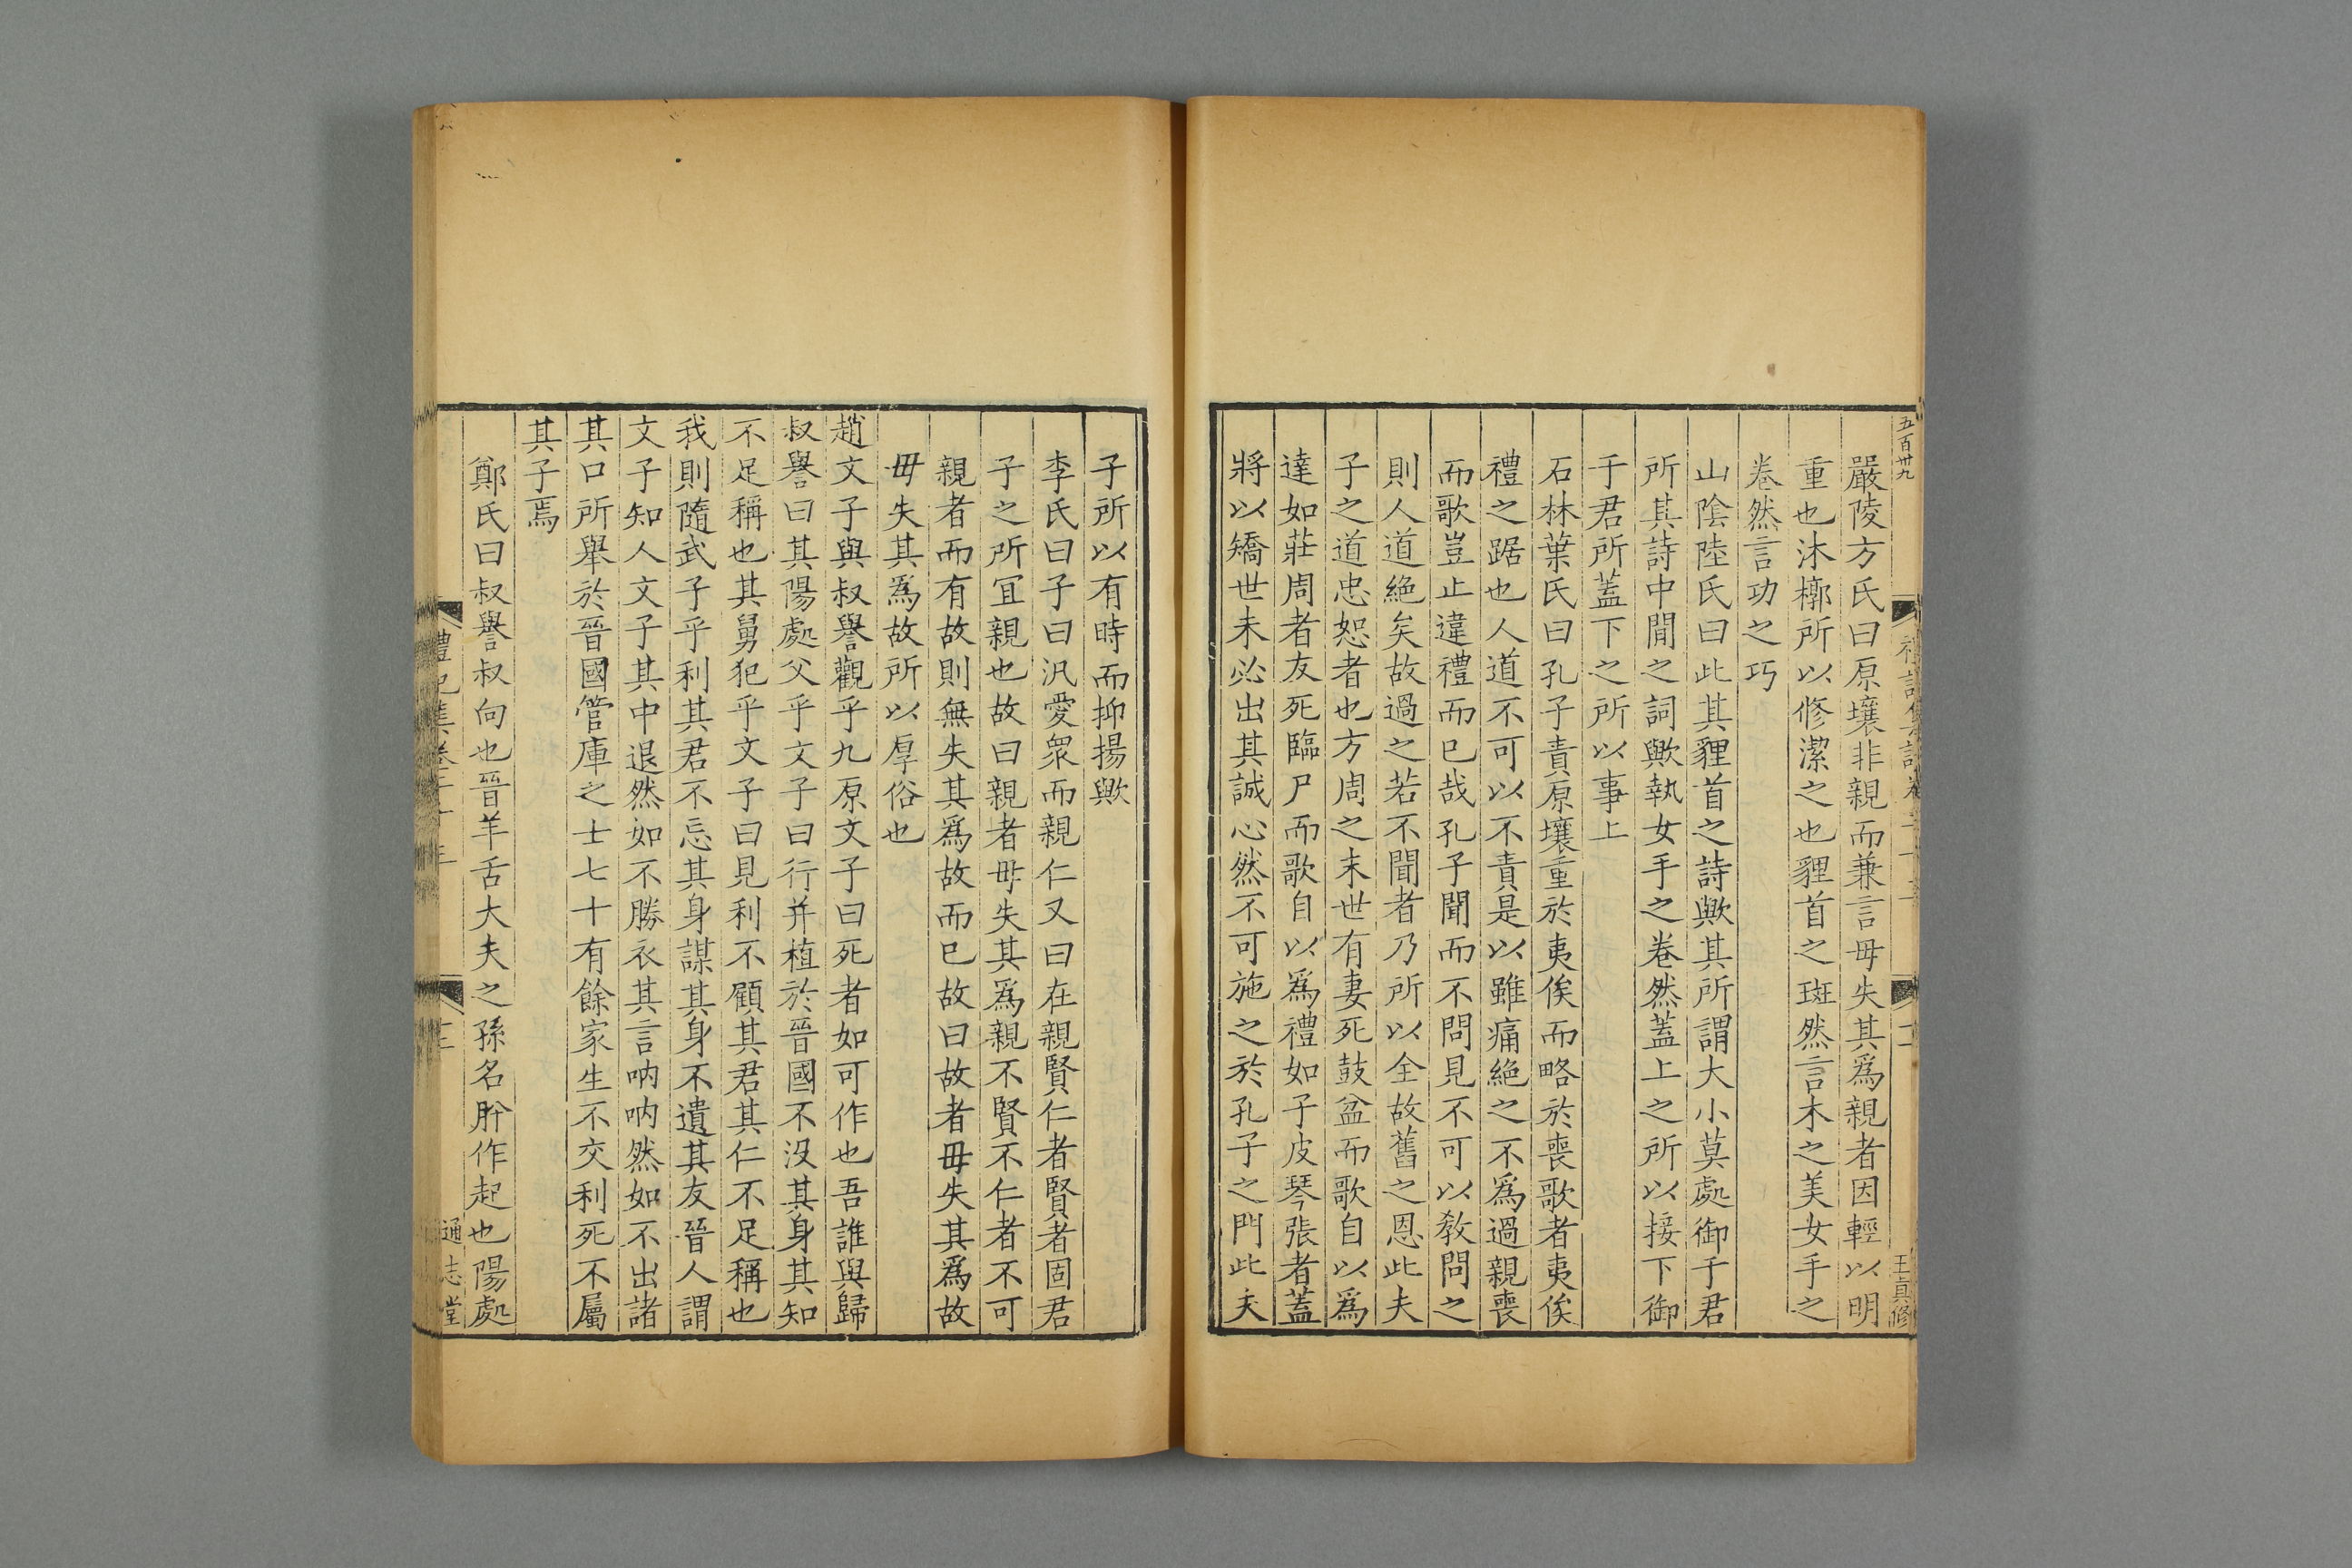 五百卅九
王眞修
嚴陵方氏曰原壤非親而兼言毋失其爲親者因輕以明
重也沐槨所以修潔之也貍首之斑然言木之美女手之
卷然言功之巧
山陰陸氏曰此其貍首之詩歟其所謂大小莫處御于君
所其詩中閒之詞歟執女手之卷然蓋上之所以接下御
于君所蓋下之所以事上
石林葉氏曰孔子責原壤重於夷俟而略於喪歌者夷俟
禮之踞也人道不可以不責是以雖痛絶之不爲過親喪
而歌豈止違禮而已哉孔子聞而不問見不可以敎問之
則人道絶矣故過之若不聞者乃所以全故舊之恩此夫
子之道忠恕者也方周之末世有妻死鼓盆而歌自以爲
達如莊周者友死臨尸而歌自以爲禮如子皮琴張者蓋
將以矯世未必出其誠心然不可施之於孔子之門此夫
子所以有時而抑揚歟
李氏曰子曰汎愛衆而親仁又曰在親賢仁者賢者固君
子之所宜親也故曰親者毋失其爲親不賢不仁者不可
親者而有故則無失其爲故而已故曰故者毋失其爲故
毋失其爲故所以厚俗也
趙文子與叔譽觀乎九原文子曰死者如可作也吾誰與歸
叔譽曰其陽處父乎文子曰行幷植於晉國不没其身其知
不足稱也其舅犯乎文子曰見利不顧其君其仁不足稱也
我則隨武子乎利其君不忘其身謀其身不遺其友晉人謂
文子知人文子其中退然如不勝衣其言吶吶然如不出諸
其口所舉於晉國管庫之士七十有餘家生不交利死不屬
其子焉
鄭氏曰叔譽叔向也晉羊舌大夫之孫名肸作起也陽處
通志堂